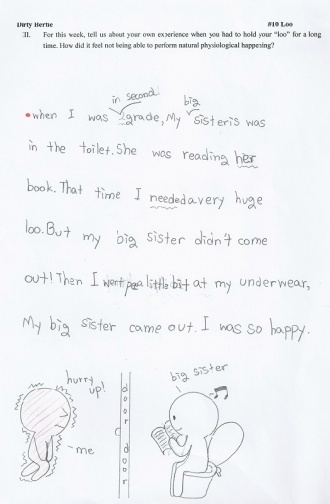 Dirty Bertie #10 Loo
III. For this week, tell us about your own experience when you had to hold your "loo" for a long
time. How did it feel not being able to perform natural physiological happening?
in second big
when I was grade, My sister is was
in the toilet. She was reading her
book. That time I needed a very huge
loo. But my big sister didn't come
out! Then I went pee a little bit at my underwear,
My big sister came out. I was so happy.
hurry
up!
me
door door
big sister